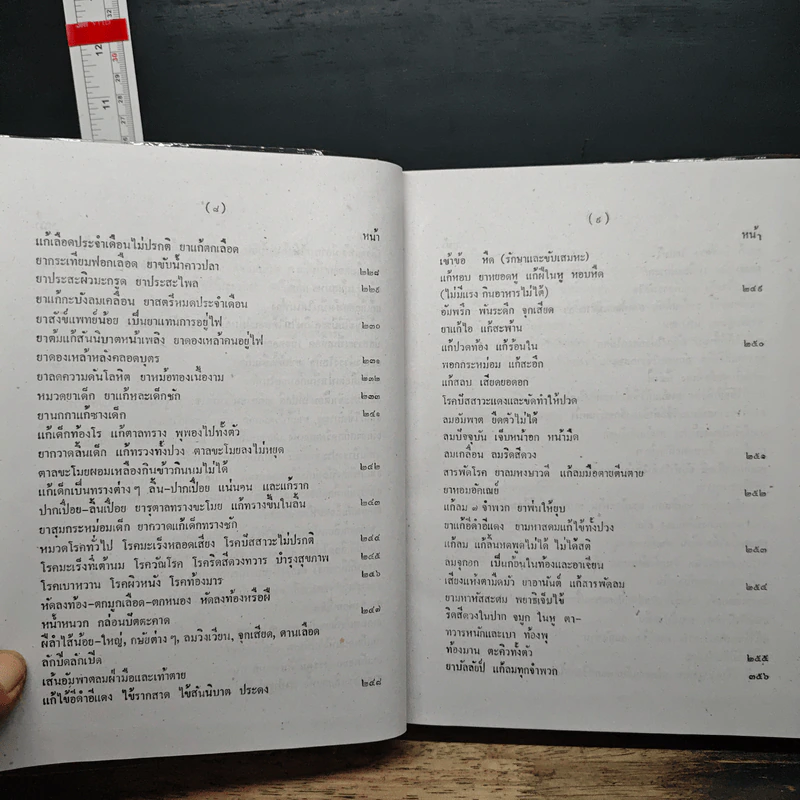 (๘)
หน้า
แก้เลือดประจำเดือนไม่ปรกติ ยาแก้ตกเลือด
ยากระเทียมฟอกเลือด ยาขับน้ำคาวปลา ๒๒๘
ยาประสะผิวมะกรูด ยาประสะไพล ๒๒๙
ยาแก้กะบังลมเคลื่อน ยาสตรีหมดประจำเดือน
ยาสังข์แพทย์น้อย เป็นยาแทนการอยู่ไฟ ๒๓๐
ยาต้มแก้สันนิบาตหน้าเพลิง ยาดองเหล้าคนอยู่ไฟ
ยาดองเหล้าหลังคลอดบุตร ๒๓๑
ยาลดความดันโลหิต ยาหม้อทองเนื้องาม ๒๓๒
หมวดยาเด็ก ยาแก้หละเด็กชัก ๒๓๓
ยานกกาแก้ซางเด็ก ๒๔๑
แก้เด็กท้องโร แก้ตาลทราง พุพองไปทั้งตัว
ยากวาดลิ้นเด็ก แก้ทรวงทั้งปวง ตาลขะโมยลงไม่หยุด
ตาลขะโมยผอมเหลืองกินข้าวกินนมไม่ได้ ๒๔๒
แก้เด็กเป็นทรางต่างๆ ลิ้น-ปากเปื่อย แน่นๆน และแก้ราก
ปากเปื่อย-ลิ้นเปื่อย ยารุตาลทรางขะโมย แก้ทรางขึ้นในลิ้น ๒๔๓
ยาสุมกระหม่อมเด็ก ยากวาดแก้เด็กทรางชัก
หมวดโรคทั่วไป โรคมะเร็งหลอดเสียง โรคปัสสาวะไม่ปรกติ ๒๔๔
โรคมะเร็งที่เต้านม โรควัณโรค โรคริดสีดวงทวาร บำรุงสุขภาพ ๒๔๕
โรคเบาหวาน โรคผิวหนัง โรคท้องมาร ๒๔๖
หัดลงท้อง-ตกมูกเลือด-ตกหนอง หัดลงท้องหรือฝี
หน้ำหนวก กล่อนปัตตะคาด ๒๔๗
ฝีลำไส้น้อย-ใหญ่, กษัยต่างๆ, ลมวิงเวียน, จุกเสียด, ดานเลือด
ลักปิดลักเปิด
เส้นอัมพาตลมฝ่ามือและเท้าตาย
แก้ไข้อีดำอีแดง ไข้รากสาด ไข้สันนิบาต ประดง ๒๔๘
(๙)
หน้า
เข้าข้อ หืด (รักษาและขับเสมหะ)
แก้หอบ ยาหยอดหู แก้ฝีในหู หอบหืด
(ไม่มีแรง กินอาหารไม่ได้) ๒๔๙
อัมพรึก พันระดึก จุกเสียด
ยาแก้ไอ แก้สะพ้าน
แก้ปวดท้อง แก้ร้อนใน ๒๕๐
พอกกระหม่อม แก้สะอึก
แก้สลบ เสียดยอดอก
โรคปัสสาวะแดงและขัดทำให้ปวด
ลมอัมพาต ยึดตัวไม่ได้
ลมปัจจุบัน เจ็บหน้าอก หน้ามืด
ลมเกลื่อน ลมริดสีดวง ๒๕๑
สารพัดโรค ยาลมหงษาวดี แก้ลมมือตายตีนตาย
ยาหอมอักเณย์ ๒๕๒
แก้ลม ๗ จำพวก ยาพ่นให้ยุบ
ยาแก้อีดำอีแดง ยามหาสดมแก้ไข้ทั้งปวง
แก้ลม แก้ลิ้นหดพูดไม่ได้ ไม่ได้สติ ๒๕๓
ลมจุกอก เป็นก้อนในท้องและอาเจียน
เสียงแหงตามืดมัว ยาอานันต์ แก้สารพัดลม ๒๕๔
ยามหาหัสะดม พยาธิเจ็บไข้
ริดสีดวงในปาก จมูก ในหู ตา-
ทวารหนักและเบา ท้องพุ
ท้องมาน ตะคิวทั้งตัว ๒๕๕
ยาบัลลัยป์ แก้ลมทุกจำพวก ๓๕๖